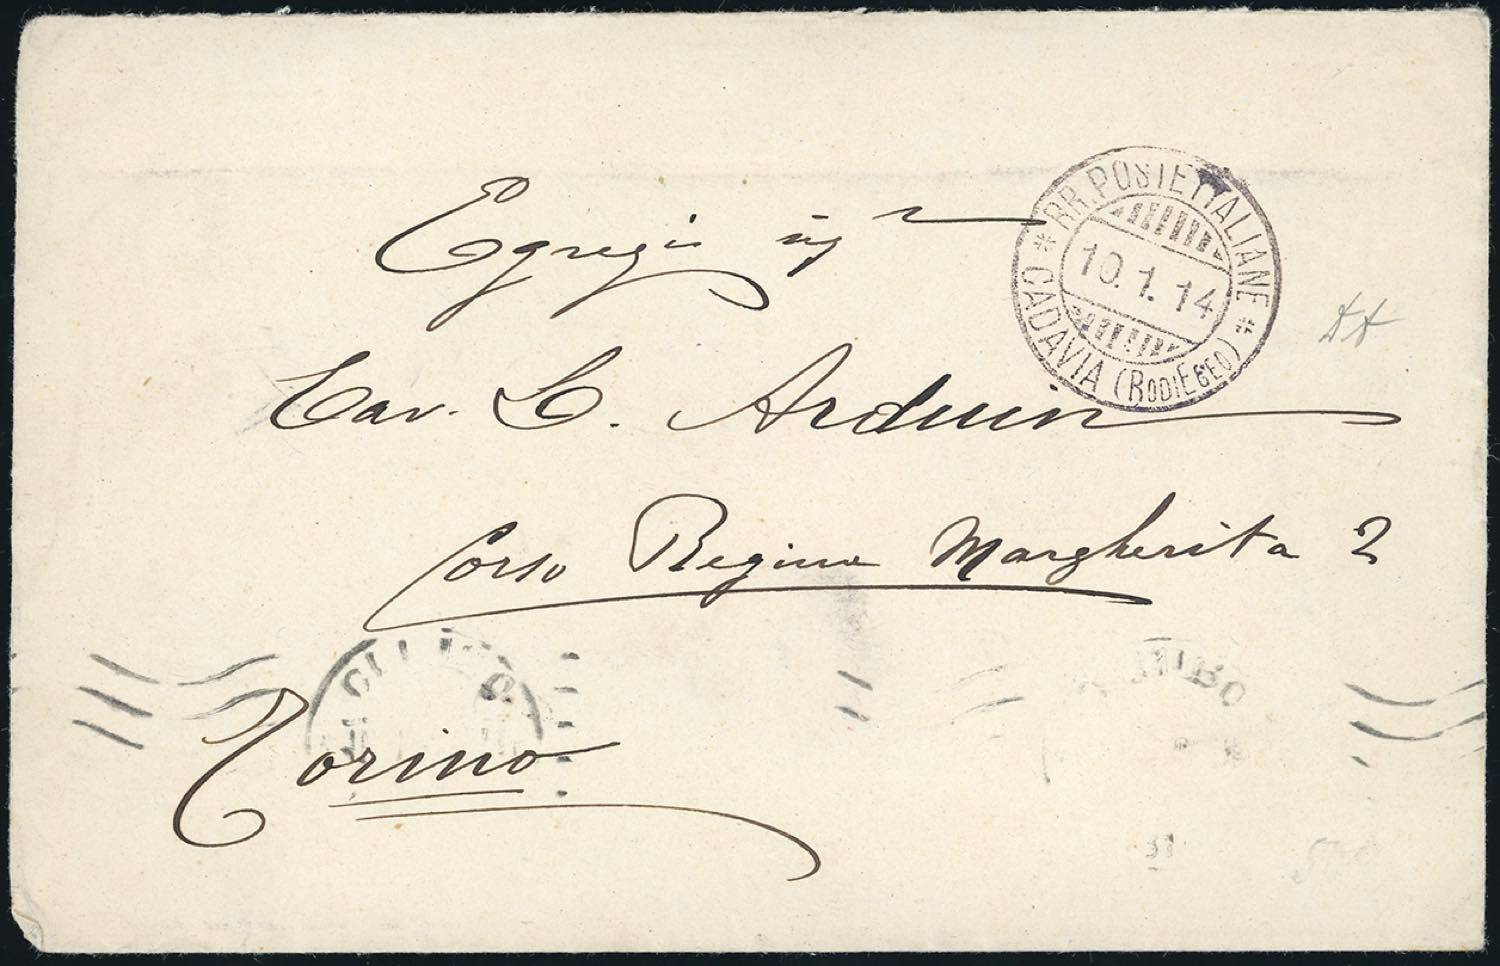 Egregio sigr
Cav. C. Arduin
Corso Regina Margherita 2
Torino
* RR. POSTE ITALIANE *
10.1.14
CADAVIA (RODI EGEO)